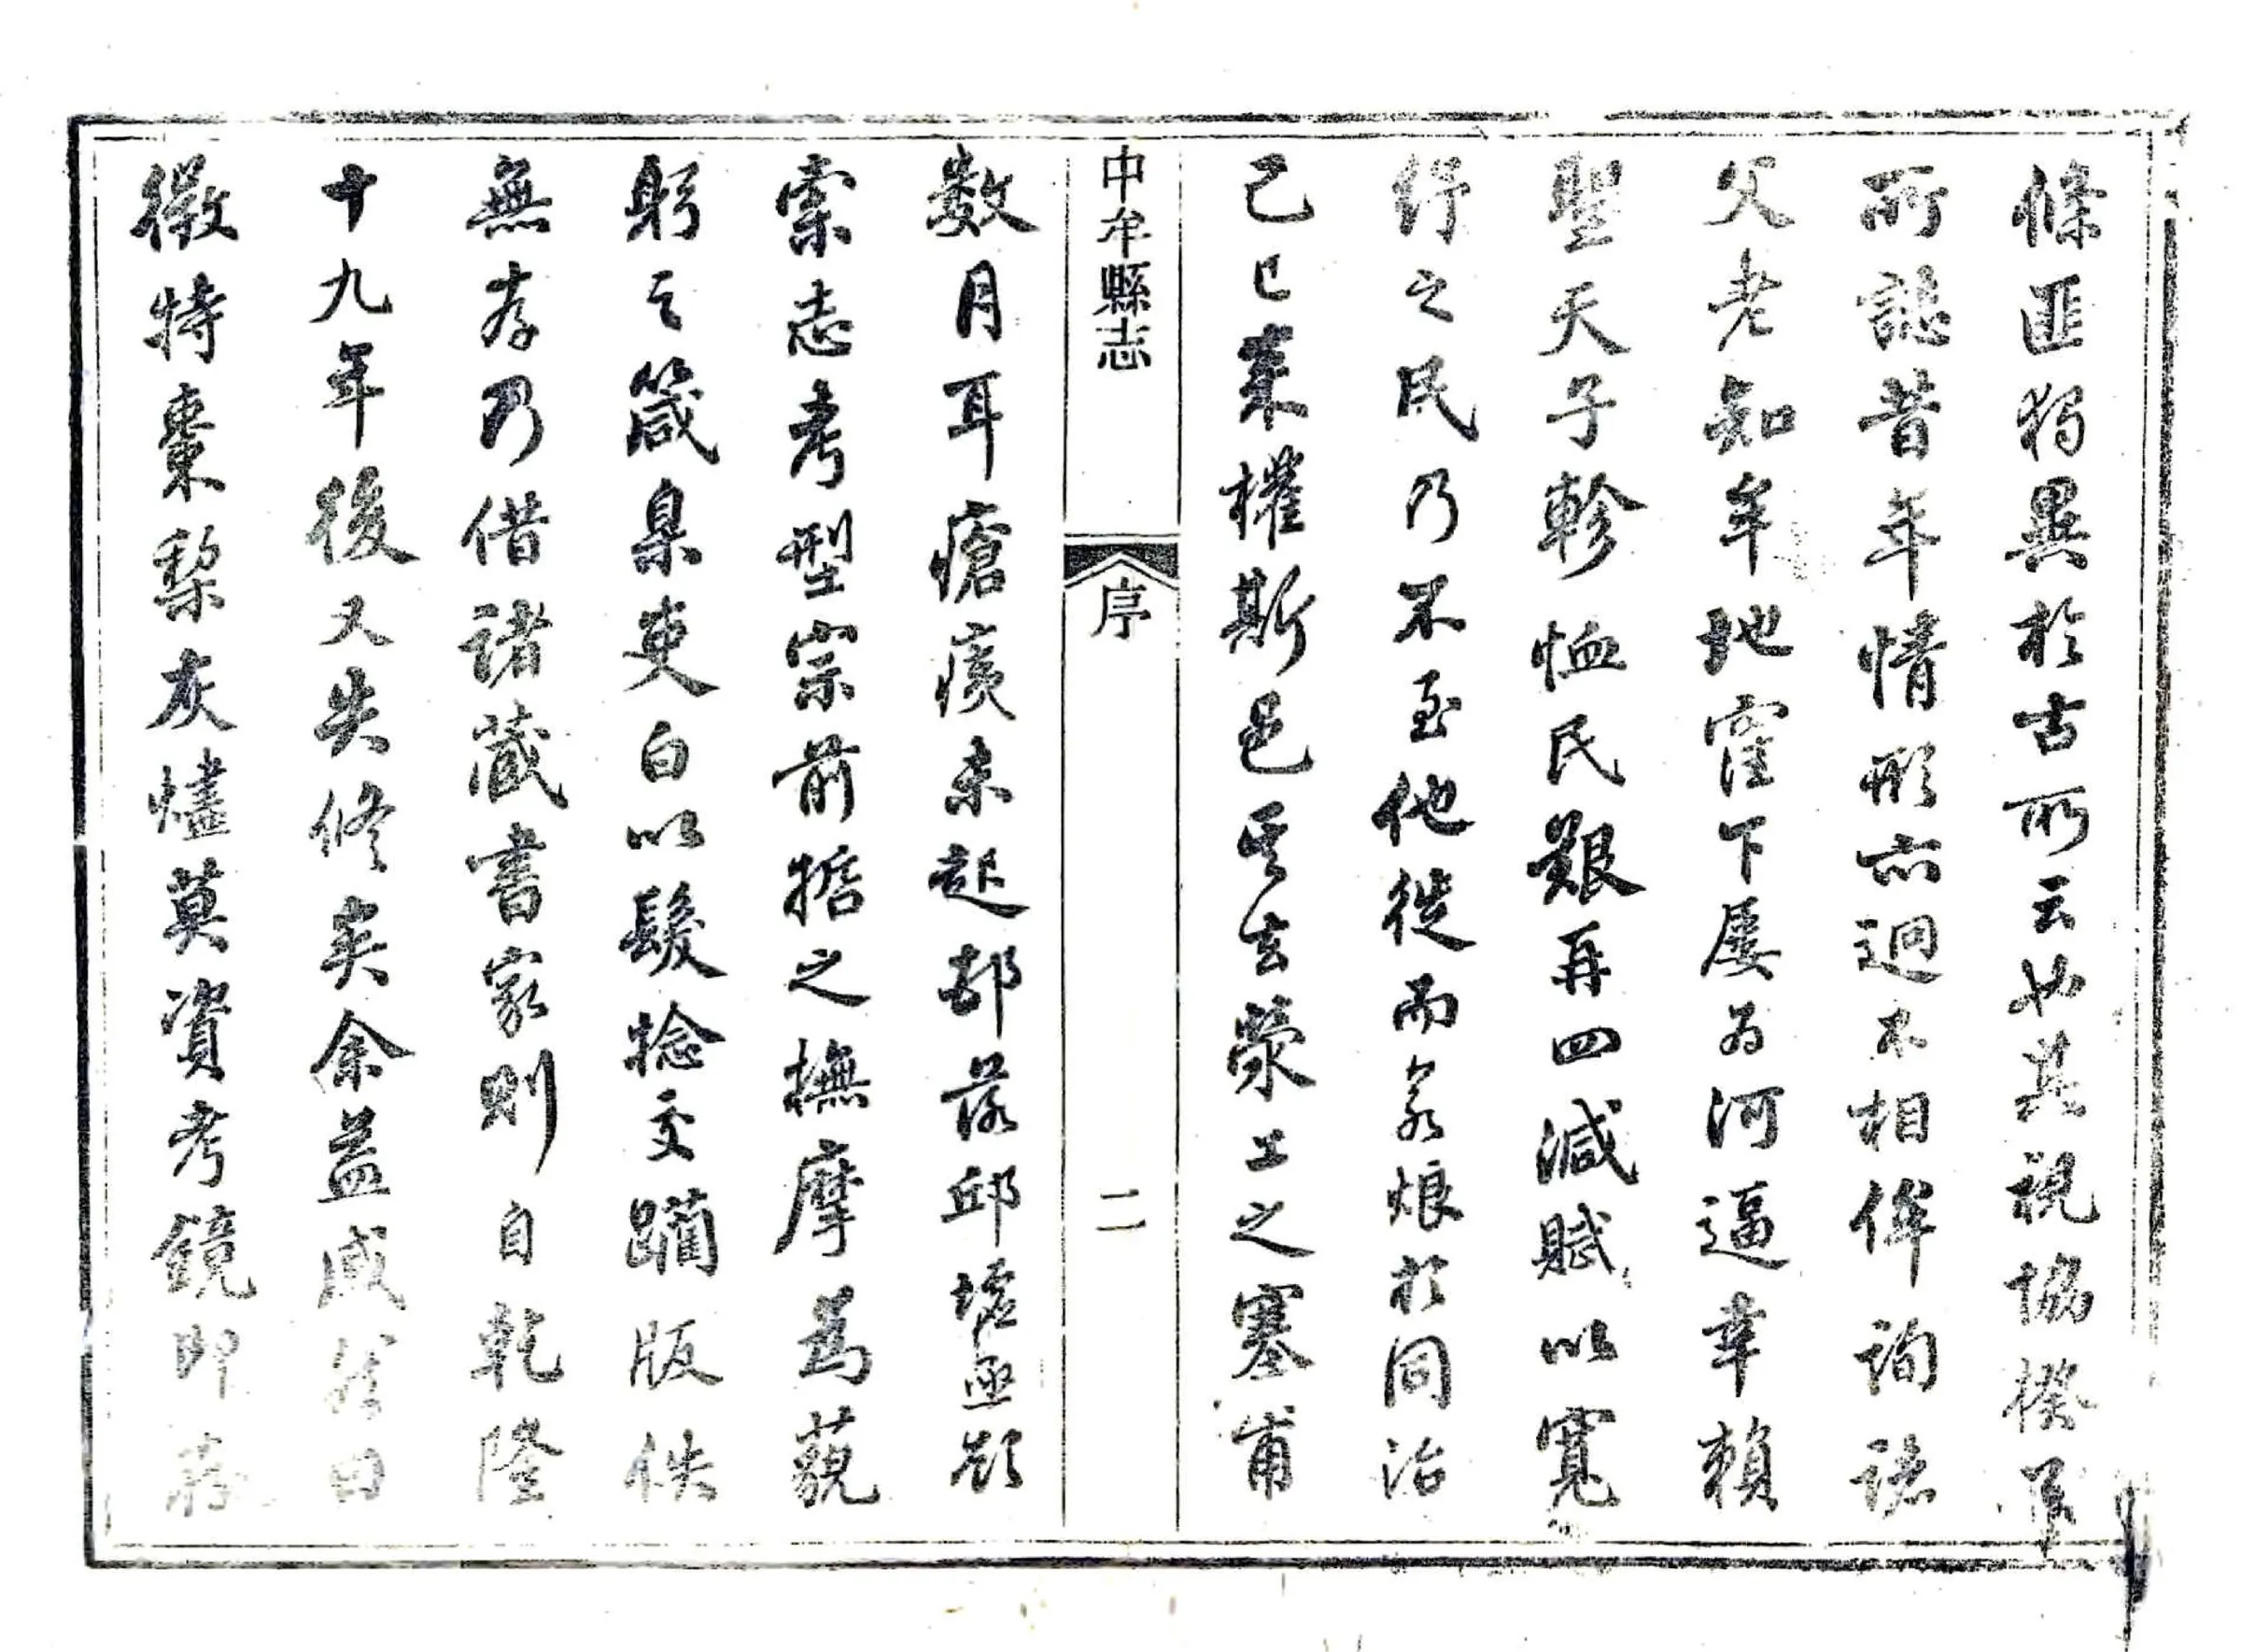 條匪獨異於古所云也其視協揆
所誌昔年情形亦迥不相侔詢諸
父老知牟地窪下屢為河逼幸賴
聖天子軫恤民艱再四減賦以寬
紓之民乃不至他徙而氽烺於同治
己巳來權斯邑其去滎工之塞甫
中牟縣志
序
二
數月耳瘡痍未起郡落邱墟亟欲
索志考型宗前哲之撫摩為藐
躬之箴臬吏白以髮捻交躪版佚
無存乃借諸藏書家則自乾隆
十九年後又失修矣余益感
徵特棗梨灰燼莫資考鏡即